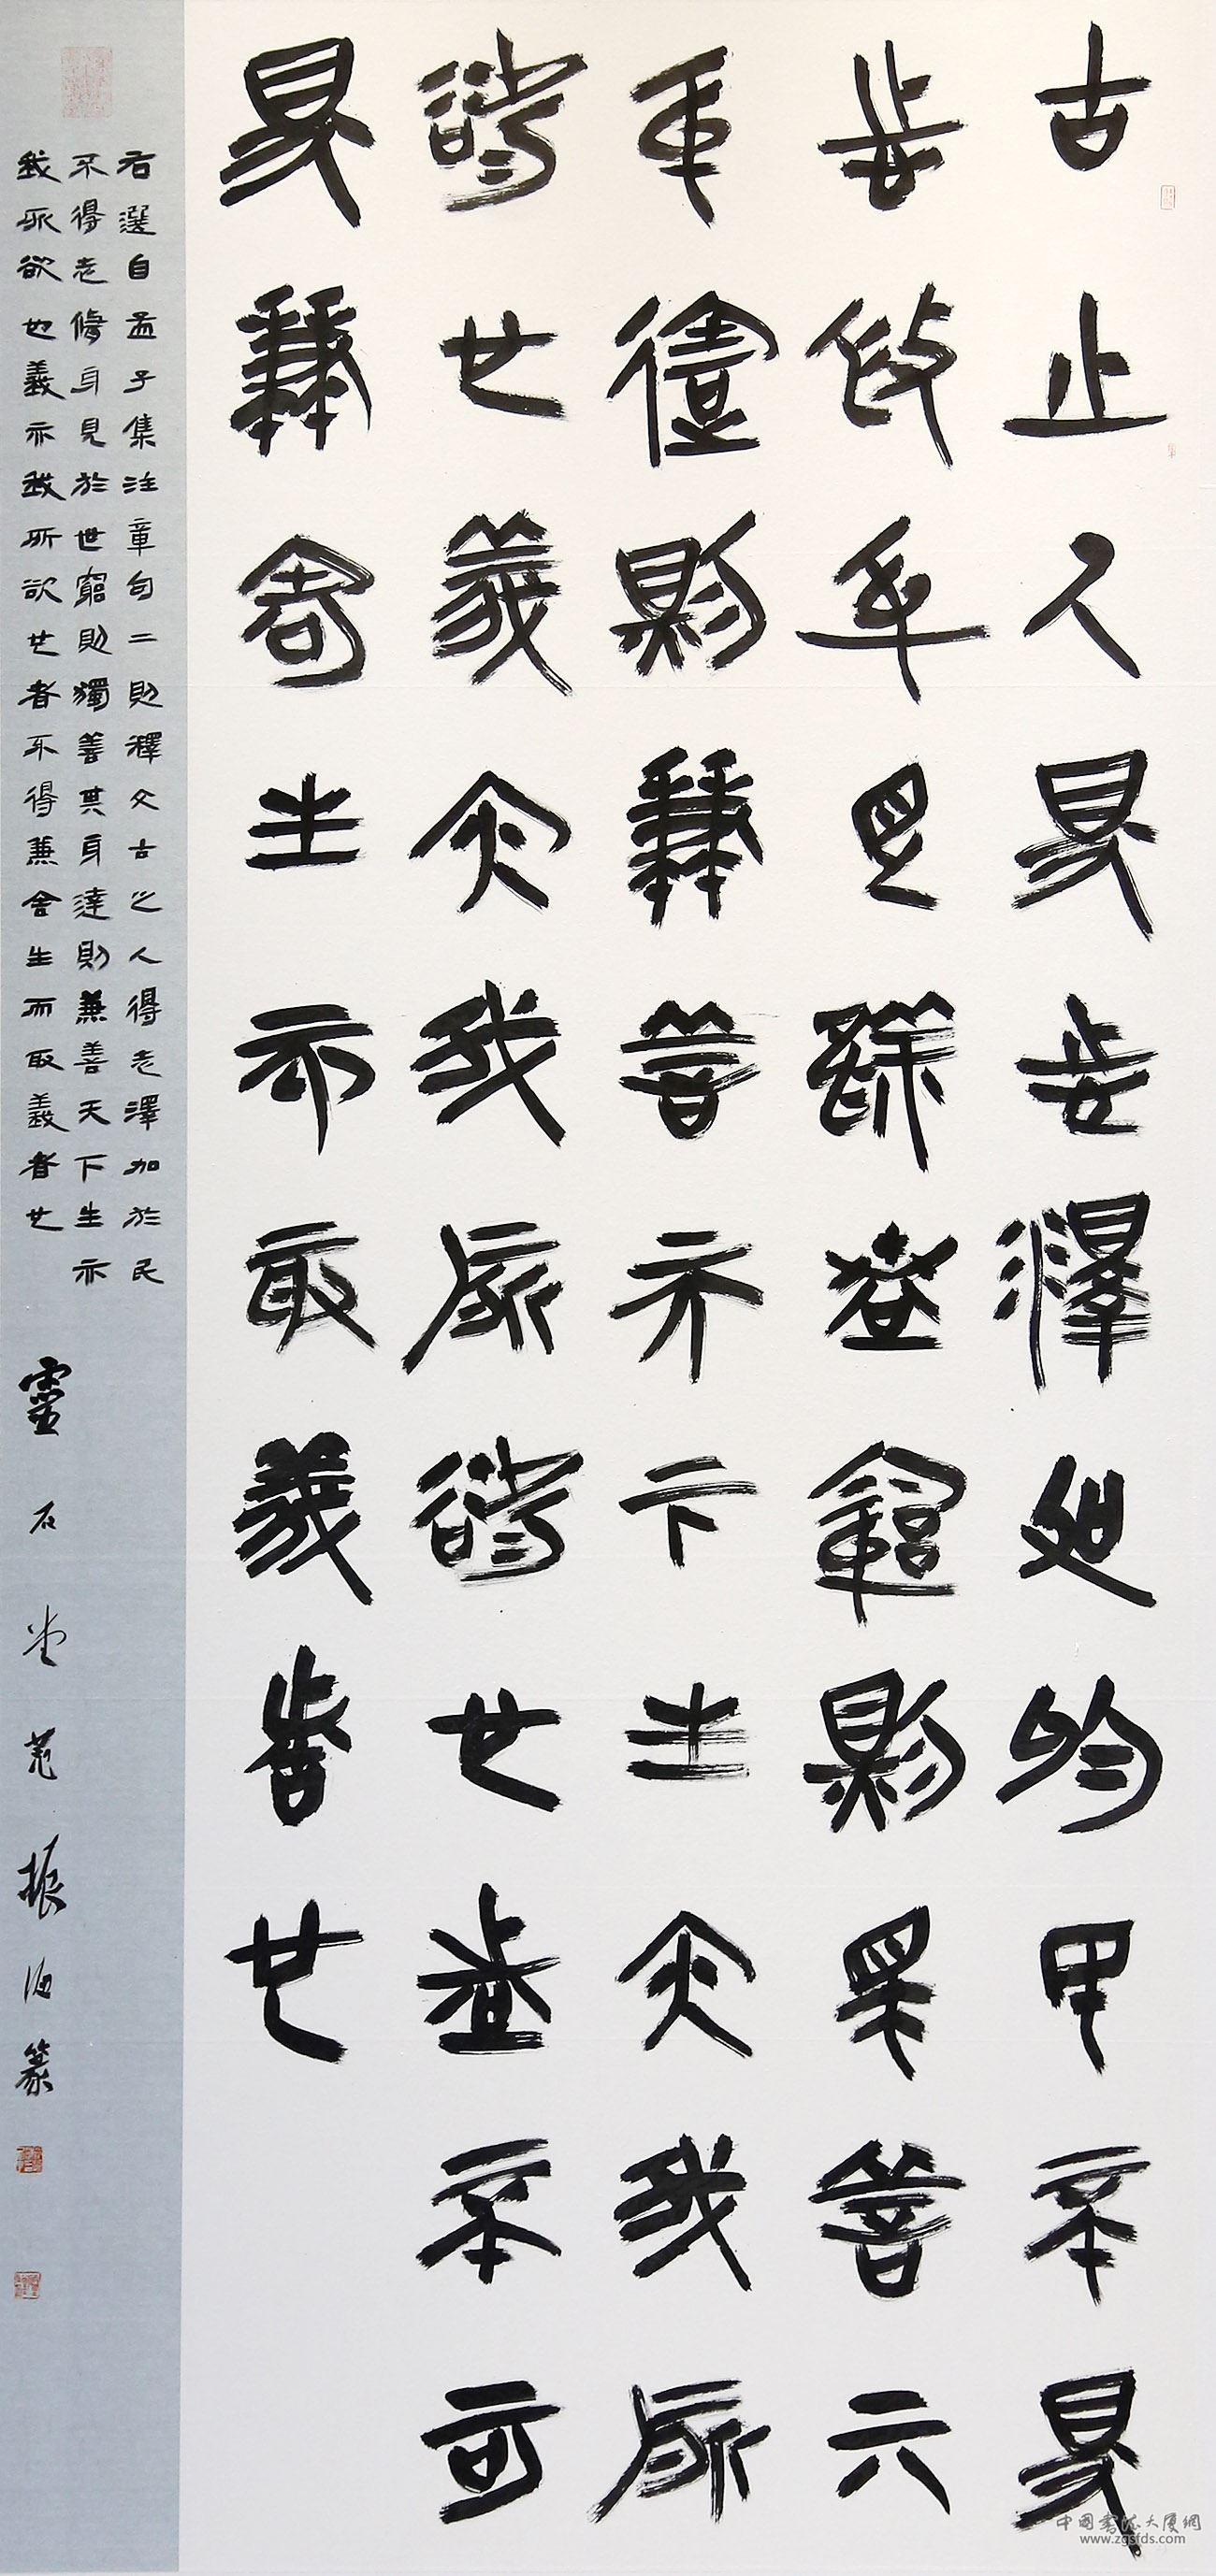 古之人得志澤加於民不得
志攸身見於世窮則獨善其
身達則兼善天下生亦我所
欲也義亦我所欲也者不可
得兼舍生而取義者也
右選自孟子集注章句二則釋文古之人得志澤加於民
不得志脩身見於世窮則獨善其身達則兼善天下生亦
我所欲也義亦我所欲也者不得兼舍生而取義者也 靈石堂范振海篆
中国書法大厦網
www.zgsfds.com